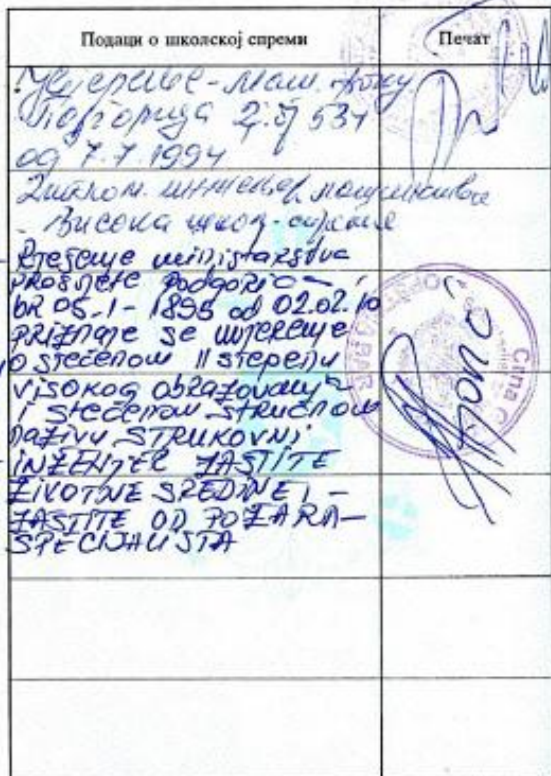 Подаци о школској спреми
Печат
Увјерење - маш. фак.
Подгорица 2. бр 534
од 7.7.1994
Диплом. инжењер машинства
- Висока школ. спрема
Rješenje ministarstva
PROSVJETE Podgorica -
BR 05-1-1895 od 02.02.10
PRIZNAJE SE UVJERENJE
O STEČENOM II STEPENU
VISOKOG OBRAZOVANJA
I STEČENOM STRUČNOM
NAZIVU STRUKOVNI
INŽENJER ZAŠTITE
ŽIVOTNE SREDINE I -
ZAŠTITE OD POŽARA -
SPECIJALISTA
Crna G
OPŠT
BAR